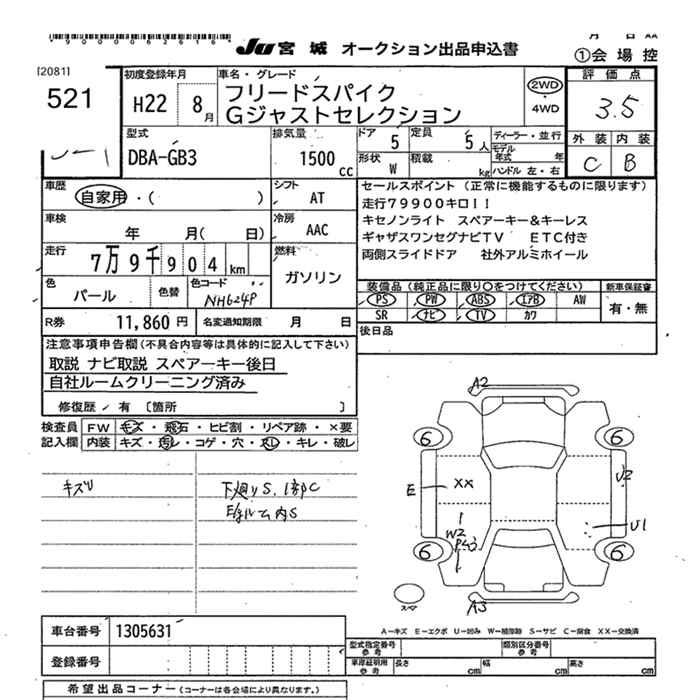 *9000062616*
JU 宮城 オークション出品申込書
①会場控
[2081]
521
初度登録年月
H22 8月
車名・グレード
フリードスパイク
Gジャストセレクション
2WD
・
4WD
評価点
3.5
外装 内装
C B
型式
DBA-GB3
排気量
1500cc
ドア 5
定員 5人
形状 W
積載 kg
ディーラー・並行
モデル年式 年
ハンドル 左・右
車歴
自家用・( )
シフト
AT
車検
年 月( 日)
冷房
AAC
走行
7万9千904km
燃料
ガソリン
色
パール
色替
色コード
NH624P
R券 11,860円
名変通知期限 月 日
セールスポイント (正常に機能するものに限ります)
走行79900キロ!!
キセノンライト スペアーキー&キーレス
ギャザスワンセグナビTV ETC付き
両側スライドドア 社外アルミホイール
装備品(純正品に限り○をつけてください)
PS PW ABS エアB AW
SR ナビ TV カワ
新車保証書
有・無
後日品
注意事項申告欄(不具合内容等は具体的に記入して下さい)
取説 ナビ取説 スペアーキー後日
自社ルームクリーニング済み
修復歴/有 〔箇所 〕
検査員記入欄
FW キズ・飛石・ヒビ割・リペア跡・×要
内装 キズ・汚レ・コゲ・穴・スレ・キレ・破レ
下廻りS、1部C
内S
A2
6 6
E XX U2
W2 U1
6 6
スペア
A3
A−キズ E−エクボ U−凹み W−補修跡 S−サビ C−腐食 XX−交換済
車台番号 1305631
登録番号
型式指定番号 参考
類別区分番号 参考
車庫証明用 参考
長さ cm
幅 cm
高さ cm
希望出品コーナー(コーナーは各会場により異なります。)